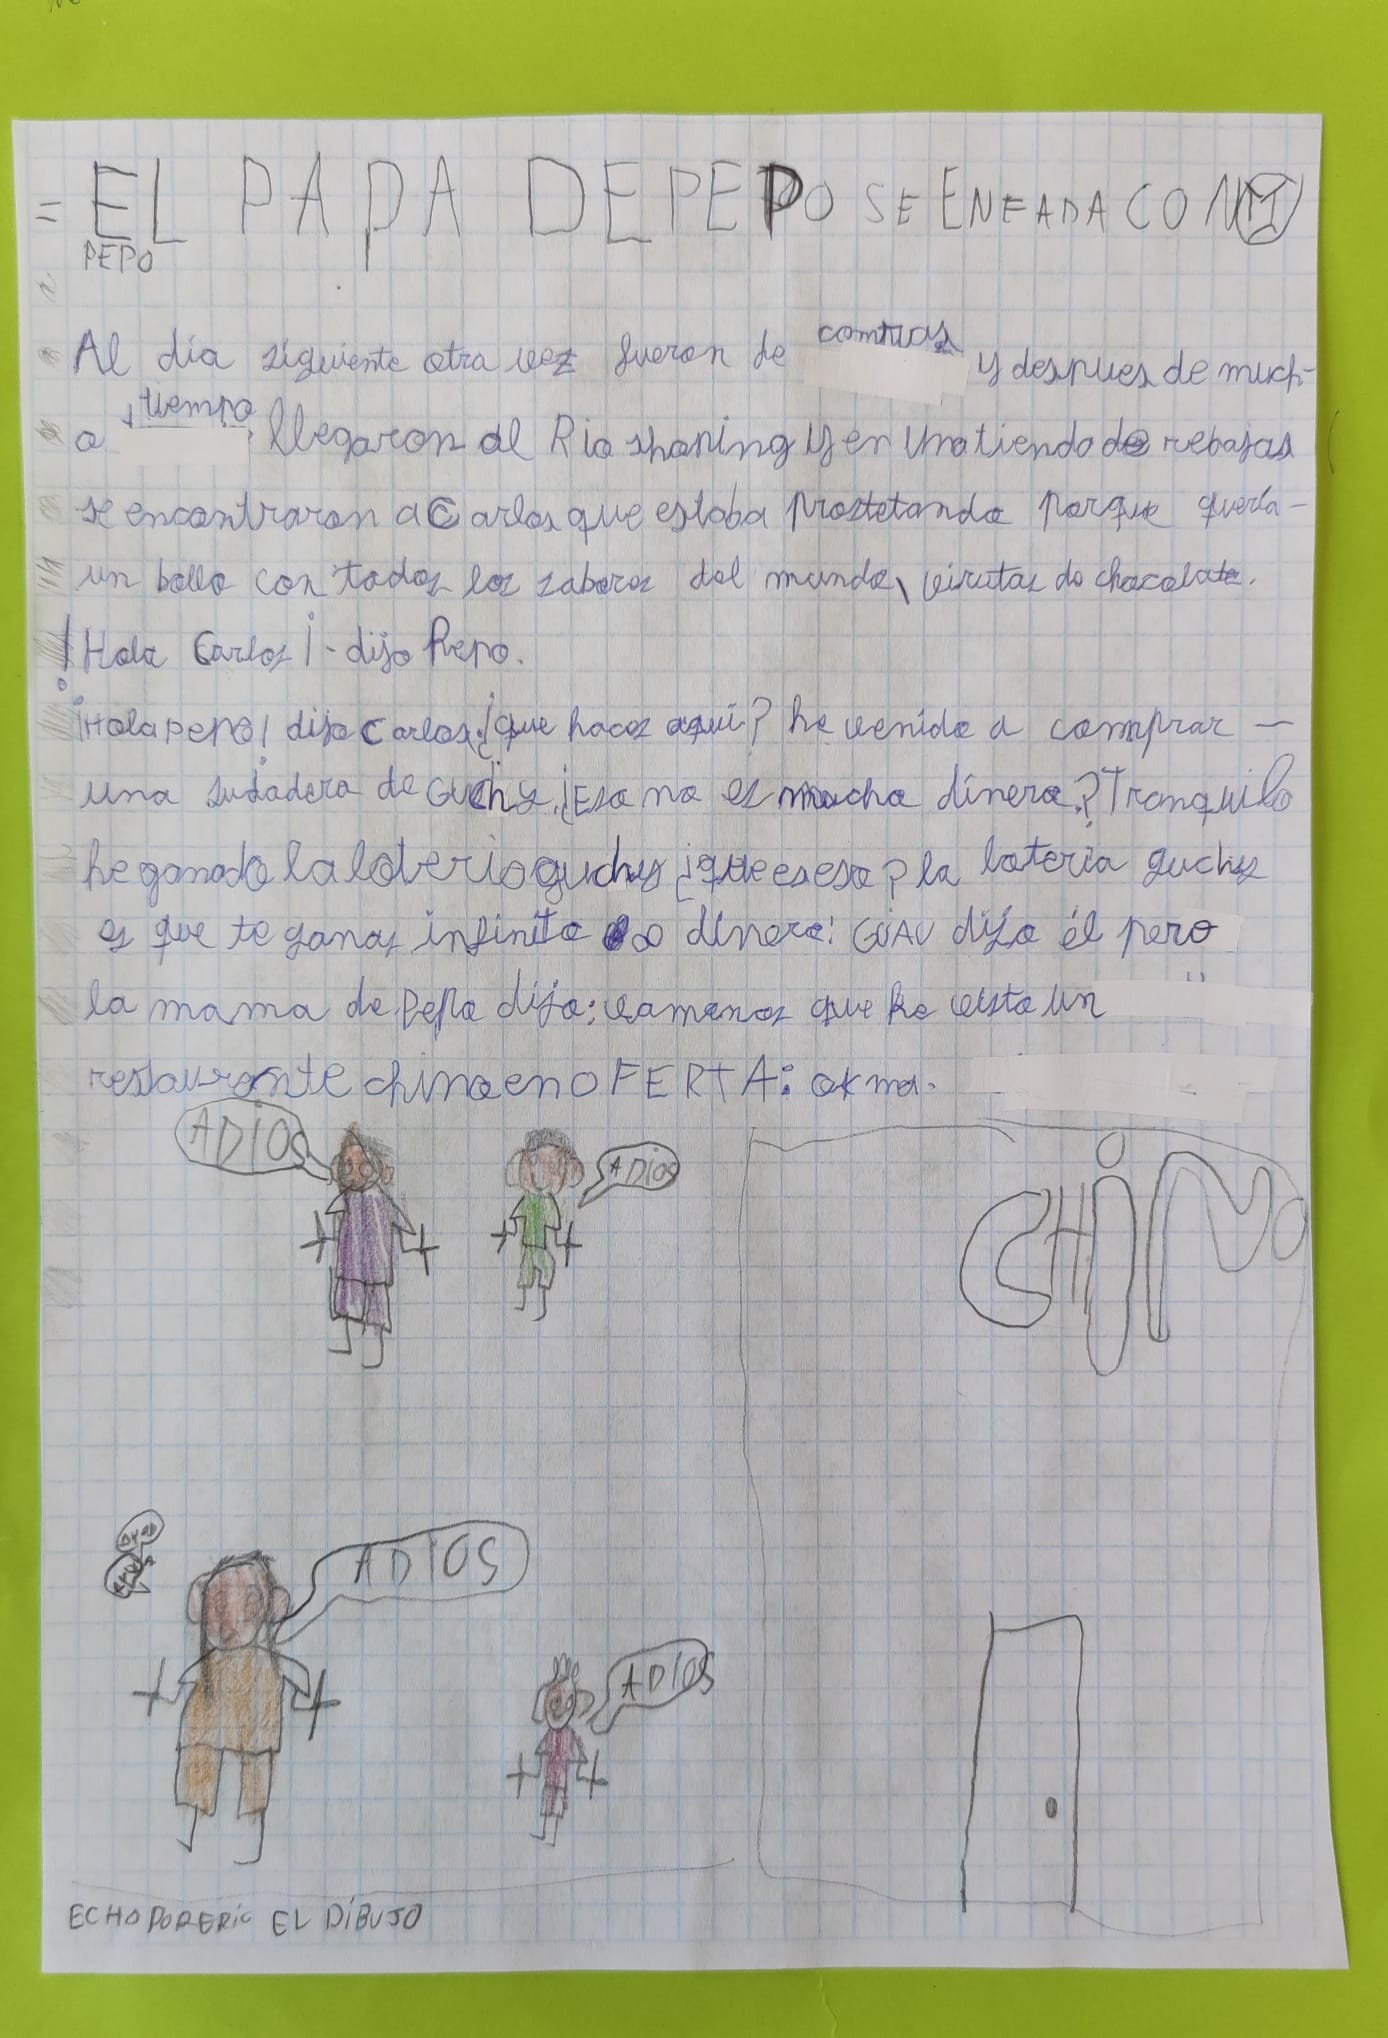 = EL PAPA DE PEPO SE ENFADA CON
PEPO
Al día siguiente otra vez fueron de compras y despues de much-
o tiempo llegaron al Rio shoping y en una tienda de rebajas
se encontraron a Carlos que estaba prostetando porque quería-
un bollo con todos los sabores del mundo, virutas de chocolate.
¡Hola Carlos! - dijo Pepo.
¡Hola pepo! dijo Carlos. ¿que haces aquí? he venido a comprar -
una sudadera de Guchy. ¿Eso no es mucho dinero? Tranquilo
he ganado la loteria guchy ¿que es eso? la lotería guchy
es que te ganas infinito ∞ dinero: GUAU dijo él pero
la mama de Pepo dijo: vamonos que he visto un
restaurante chino en OFERTA: ok ma.
ADIOS
ADIOS
CHINO
ADIOS
ADIOS
ECHO POR ERIC EL DIBUJO